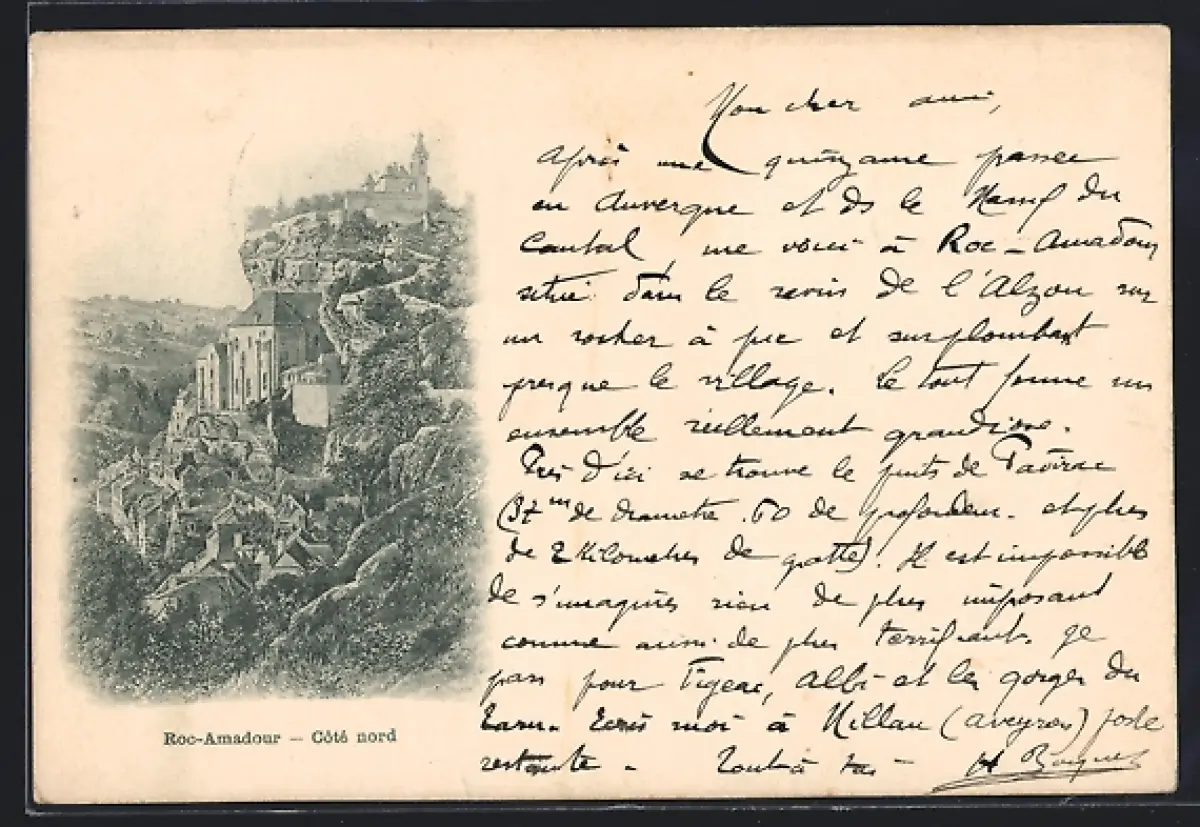 Mon cher ami,
Après une quinzaine passée
en Auvergne et ds le Massif du
Cantal, me voici à Roc-Amadour
situé dans le ravin de l'Alzou sur
un rocher à pic et surplombant
presque le village. Le tout forme un
ensemble réellement grandiose.
Près d'ici se trouve le puits de Padirac
(37 m de diamètre. 60 de profondeur. et plus
de 2 kilomètres de grotte). Il est impossible
de s'imaginer rien de plus imposant
comme aussi de plus terrifiant. Je
pars pour Figeac, Albi et les gorges du
Tarn. Ecris moi à Millau (Aveyron) poste
restante - Tout à toi -
Roc-Amadour - Côté nord